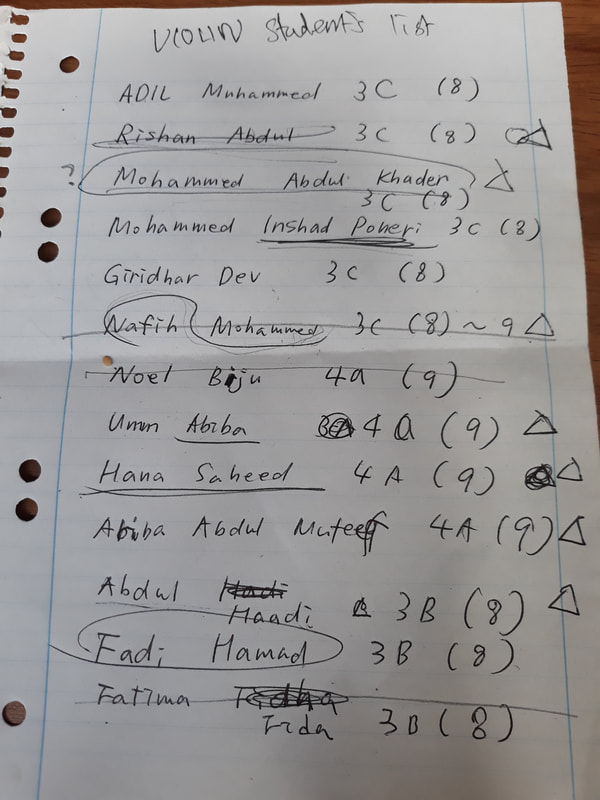 VIOLIN Student's list
ADIL Muhammed 3C (8)
Rishan Abdul 3C (8)
? Mohammed Abdul Khader
3C (8)
Mohammed Inshad Poneri 3C (8)
Giridhar Dev 3C (8)
Nafih Mohammed 3C (8) ~ 9
Noel Biju 4a (9)
Umm Abiba 4A (9)
Hana Saheed 4A (9)
Abiba Abdul 4A (9)
Abdul Hadi
Haadi 3B (8)
Fadi Hamad 3B (8)
Fatima Fidha
Fida 3B (8)